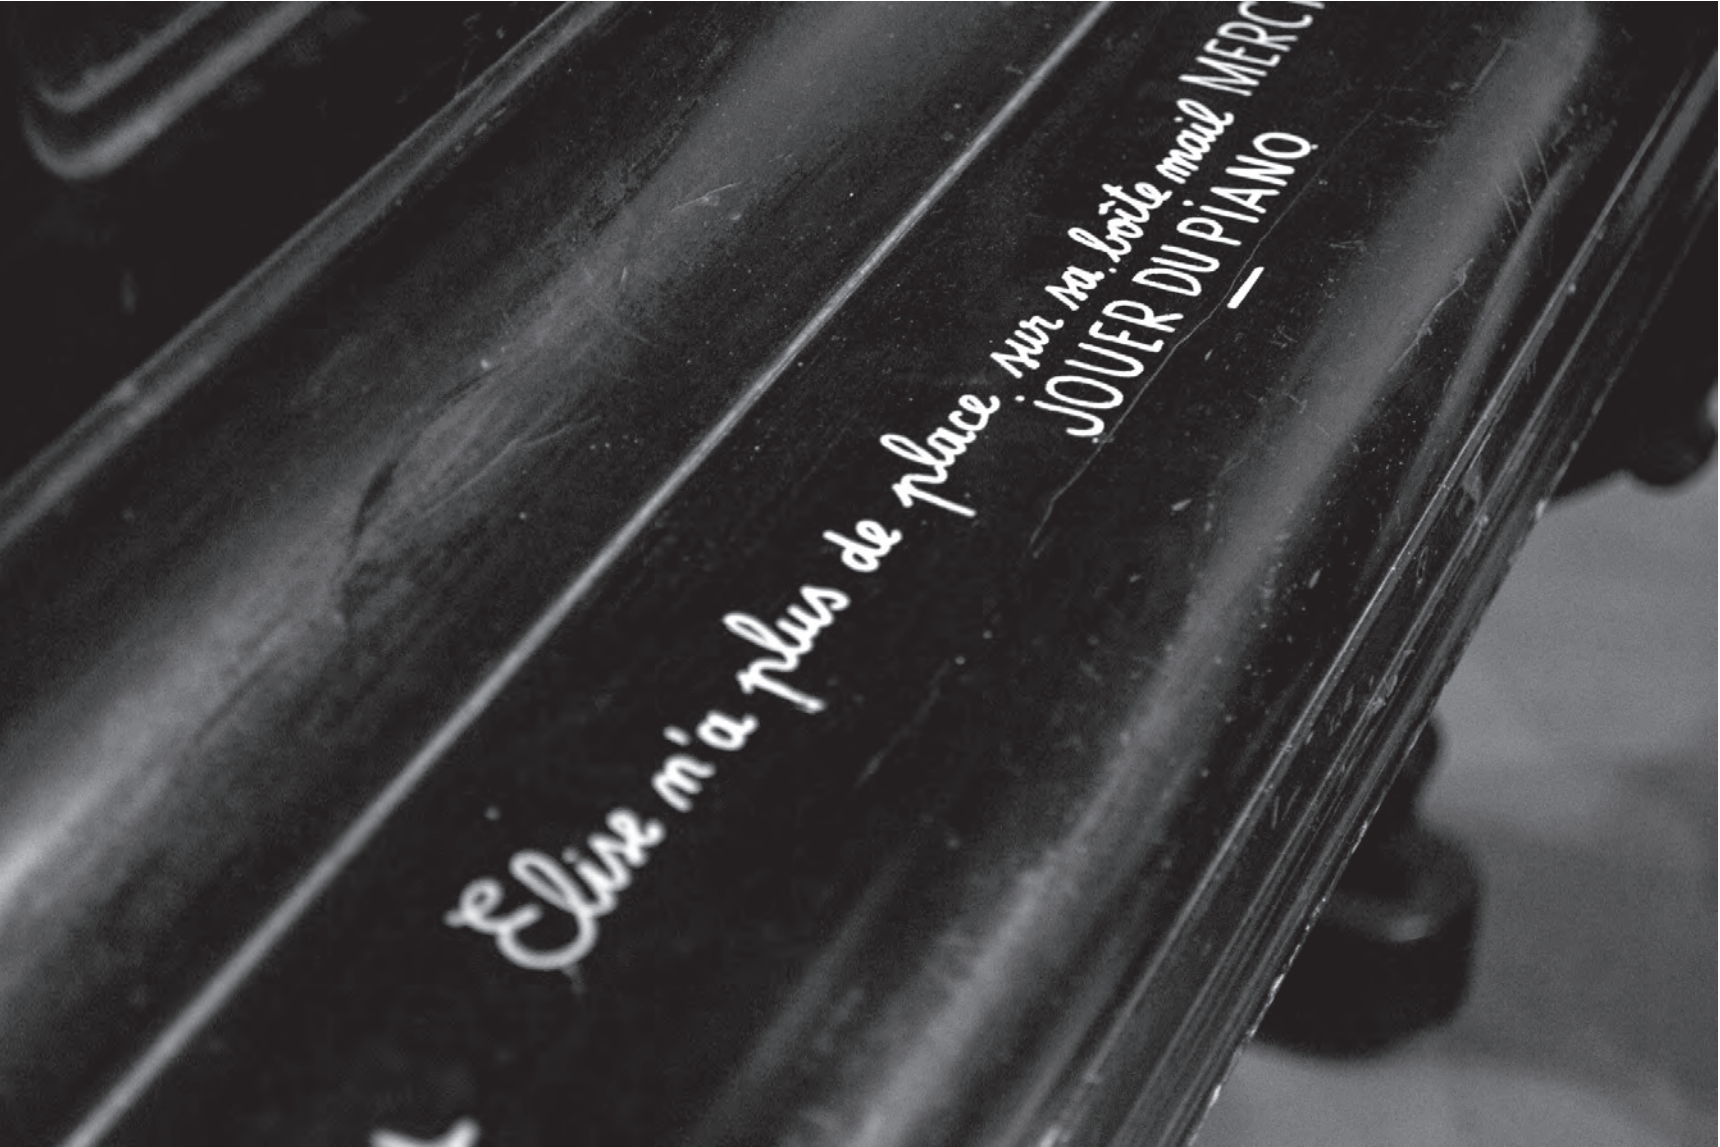 Elise n'a plus de place sur sa boîte mail MERCI
JOUER DU PIANO